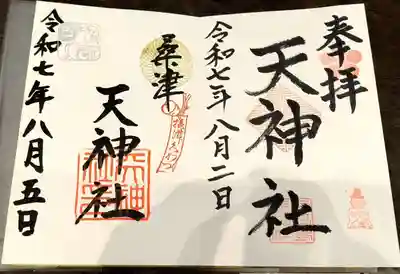 奉拝
天神社
令和七年八月二日
桑津
天神社
令和七年八月五日